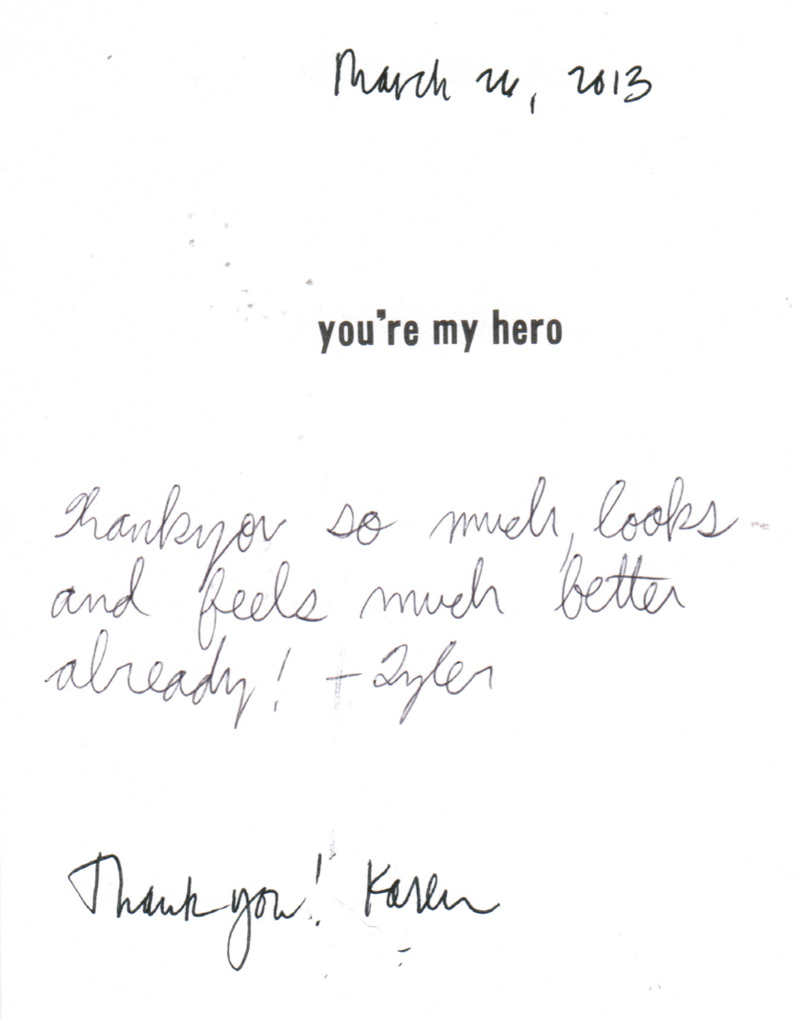 March 26, 2013
you're my hero
Thankyou so much, looks
and feels much better
already! - Tyler
Thank you! Karen